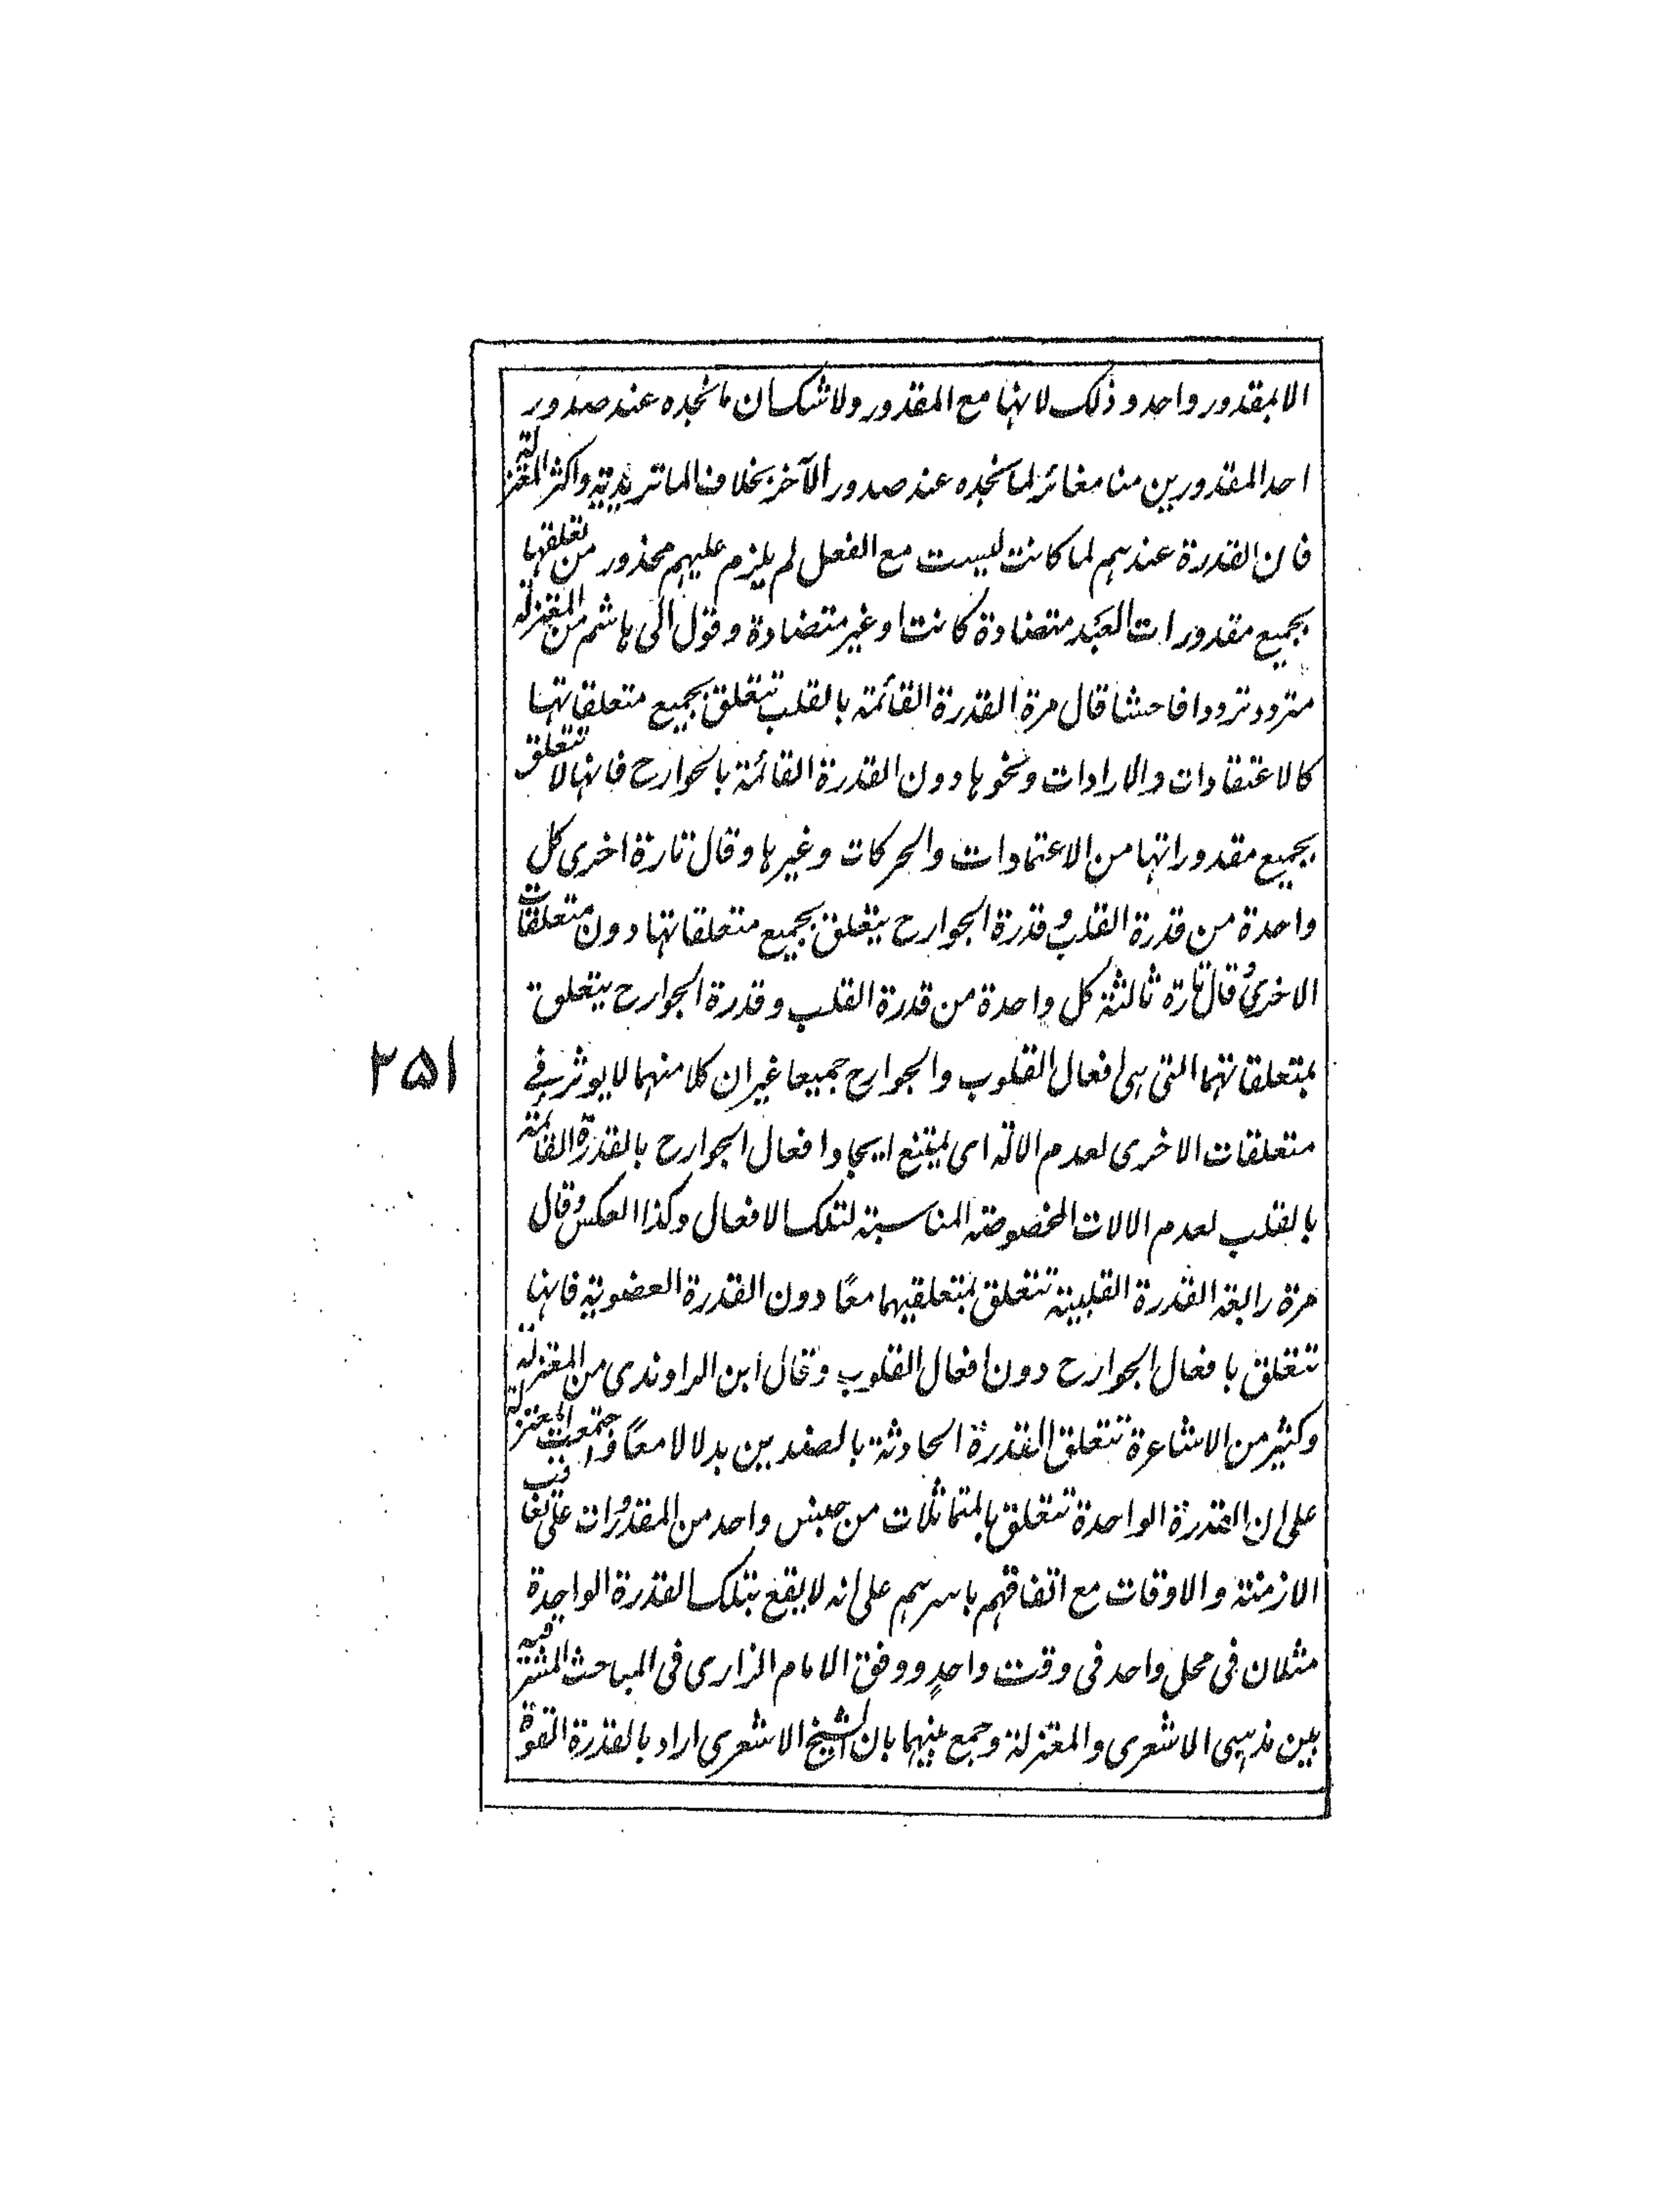 الا بمقدور واحد و ذلك لانها مع المقدور ولا شك ان ما نجده عند صدور
احد المقدورين منا مغائر لما نجده عند صدور الآخر بخلاف الماتريدية واكثر المعتزلة
فان القدرة عندهم لما كانت ليست مع الفعل لم يلزم عليهم محذور من تعلقها
بجميع مقدورات العبد متضادة كانت او غير متضادة و قول ابى هاشم من المعتزلة
متردد ترددا فاحشا قال مرة القدرة القائمة بالقلب تتعلق بجميع متعلقاتها
كالاعتقادات والارادات ونحوها دون القدرة القائمة بالجوارح فانها لا تتعلق
بجميع مقدوراتها من الاعتمادات والحركات وغيرها وقال تارة اخرى كل
واحدة من قدرة القلب و قدرة الجوارح يتعلق بجميع متعلقاتها دون متعلقات
الاخرى و قال تارة ثالثة كل واحدة من قدرة القلب و قدرة الجوارح يتعلق
بمتعلقاتهما التى هى افعال القلوب والجوارح جميعا غير ان كلا منهما لا يوثر في
متعلقات الاخرى لعدم الالة اى يمتنع ايجاد افعال الجوارح بالقدرة القائمة
بالقلب لعدم الالات المخصوصة المناسبة لتلك الافعال وكذا العكس وقال
مرة رابعة القدرة القلبية تتعلق بمتعلقيهما معًا دون القدرة العضوية فانها
تتعلق بافعال الجوارح دون افعال القلوب وقال ابن الراوندى من المعتزلة
وكثير من الاشاعرة تتعلق القدرة الحادثة بالضدين بدلا لا معًا واجتمعت المعتزلة
على ان القدرة الواحدة تتعلق بالمتماثلات من جنس واحد من المقدورات على تعاقب
الازمنة والاوقات مع اتفاقهم باسرهم على انه لا يقع بتلك القدرة الواحدة
مثلان في محل واحد في وقت واحدٍ ووفق الامام الرازى في المباحث المشرقية
بين مذهبى الاشعرى والمعتزلة وجمع بينهما بان الشيخ الاشعرى اراد بالقدرة القوة
۲۵۱